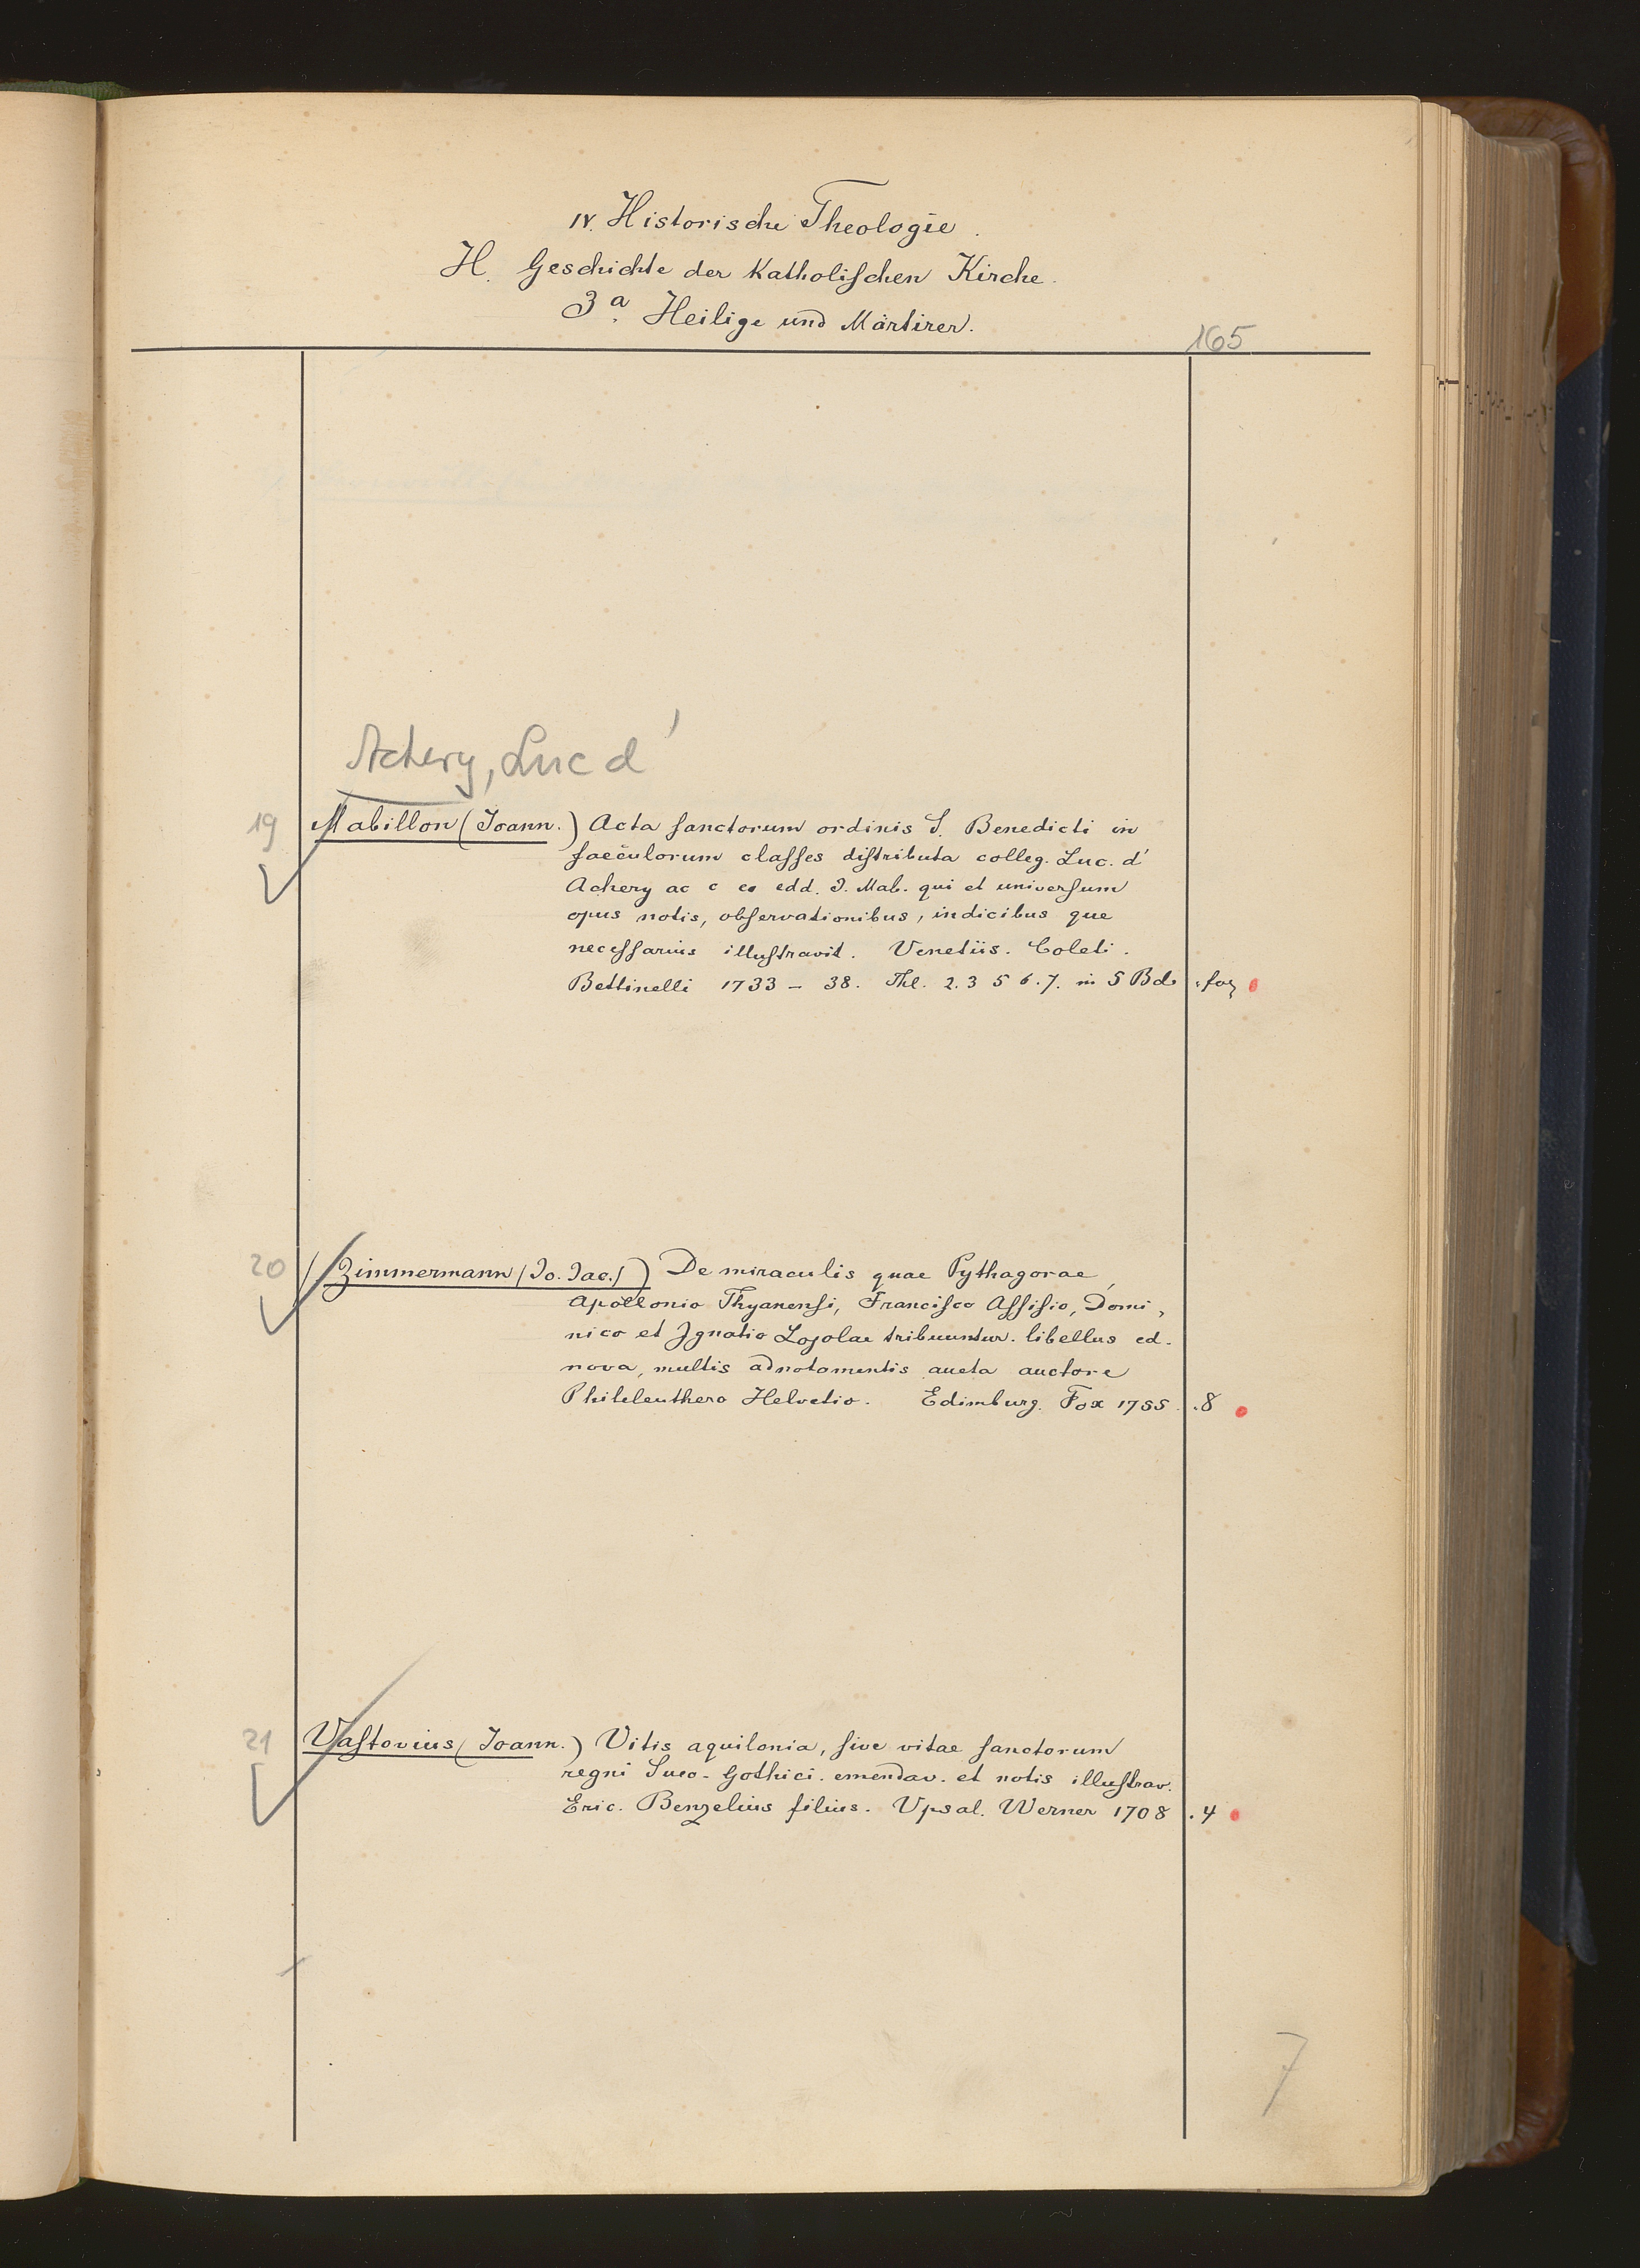 IV. Historische Theologie.
H. Geschichte der Katholischen Kirche.
3a. Heilige und Märtirer.
165
Achery, Luc d'
19 Mabillon (Joann.) Acta sanctorum ordinis S. Benedicti in
saeculorum classes distributa colleg. Luc. d'
Achery ac c eo edd. J. Mab. qui et universum
opus notis, observationibus, indicibus que
necessariis illustravit. Venetiis. Coleti.
Bettinelli 1733 - 38. Thl. 2. 3 5 6. 7. in 5 Bd. fol
20 (Zimmermann (Jo. Jac.)) De miraculis quae Pythagorae,
Apollonio Thyanensi, Francisco Assisio, Domi,
nico et Ignatio Lojolae tribuuntur. libellus ed.
nova, multis adnotamentis aucta auctore
Phileleuthero Helvetio. Edimburg. Fox 1755. .8
21 Vastovius (Joann.) Vitis aquilonia, sive vitae sanctorum
regni Sueo-Gothici. emendav. et notis illustrav.
Eric. Benzelius filius. Upsal. Werner 1708 .4
7